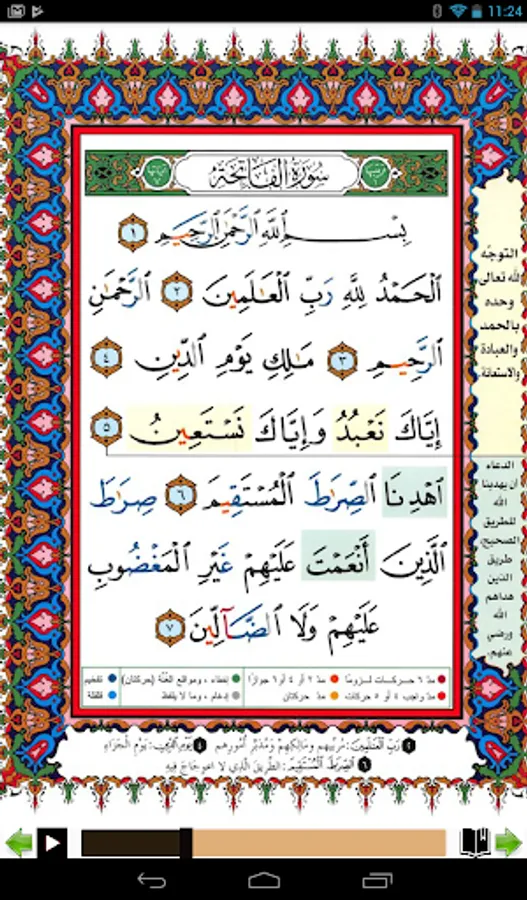 11:24
سُورَةُ الفَاتِحَة
بِسْمِ ٱللَّهِ ٱلرَّحْمَٰنِ ٱلرَّحِيمِ ١
ٱلْحَمْدُ لِلَّهِ رَبِّ ٱلْعَٰلَمِينَ ٢ ٱلرَّحْمَٰنِ
ٱلرَّحِيمِ ٣ مَٰلِكِ يَوْمِ ٱلدِّينِ ٤
إِيَّاكَ نَعْبُدُ وَإِيَّاكَ نَسْتَعِينُ ٥
ٱهْدِنَا ٱلصِّرَٰطَ ٱلْمُسْتَقِيمَ ٦ صِرَٰطَ
ٱلَّذِينَ أَنْعَمْتَ عَلَيْهِمْ غَيْرِ ٱلْمَغْضُوبِ
عَلَيْهِمْ وَلَا ٱلضَّآلِّينَ ٧
التوجّه
لله تعالى
وحده
بالحمد
والعبادة
والاستعانة
الدعاء
أن يهدينا
الله
للطريق
الصحيح،
طريق
الذين
هداهم
الله
ورضي
عنهم.
مدّ ٦ حركات لزوماً مدّ ٢ أو ٤ أو ٦ جوازاً إخفاء، ومواقع الغُنَّة (حركتان) تفخيم
مدّ واجب ٤ أو ٥ حركات مدّ حركتان إدغام، وما لا يُلفظ قلقلة
٢ رَبِّ العَٰلَمِينَ: مُرَبِّيهِم وَمَالِكِهِم وَمُدَبِّرِ أُمُورِهِم ٤ يَوْمِ الدِّين: يَوْمِ الْجَزَاءِ
٦ الصِّرَٰطَ المُسْتَقِيمَ: الطَّرِيقَ الَّذِي لا اعْوِجَاجَ فِيهِ